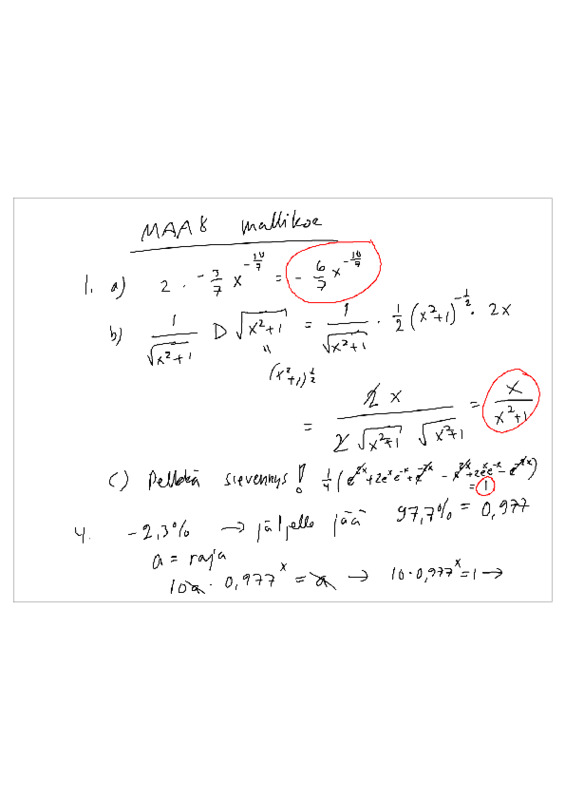 MAA8 mallikoe
1. a) 2 · -3/7 x^(-10/7) = -6/7 x^(-10/7)
b) 1/√(x²+1) D √(x²+1) = 1/√(x²+1) · 1/2 (x²+1)^(-1/2) · 2x
"
(x²+1)^(1/2)
= 2x / (2 √(x²+1) √(x²+1)) = x/(x²+1)
c) Pelkkä sievennys! 1/4 (e^(2x) + 2e^x e^(-x) + e^(-2x) - e^(2x) + 2e^x e^(-x) - e^(-2x))
= 1
4. -2,3% → jäljelle jää 97,7% = 0,977
a = raja
10a · 0,977^x = a → 10 · 0,977^x = 1 →